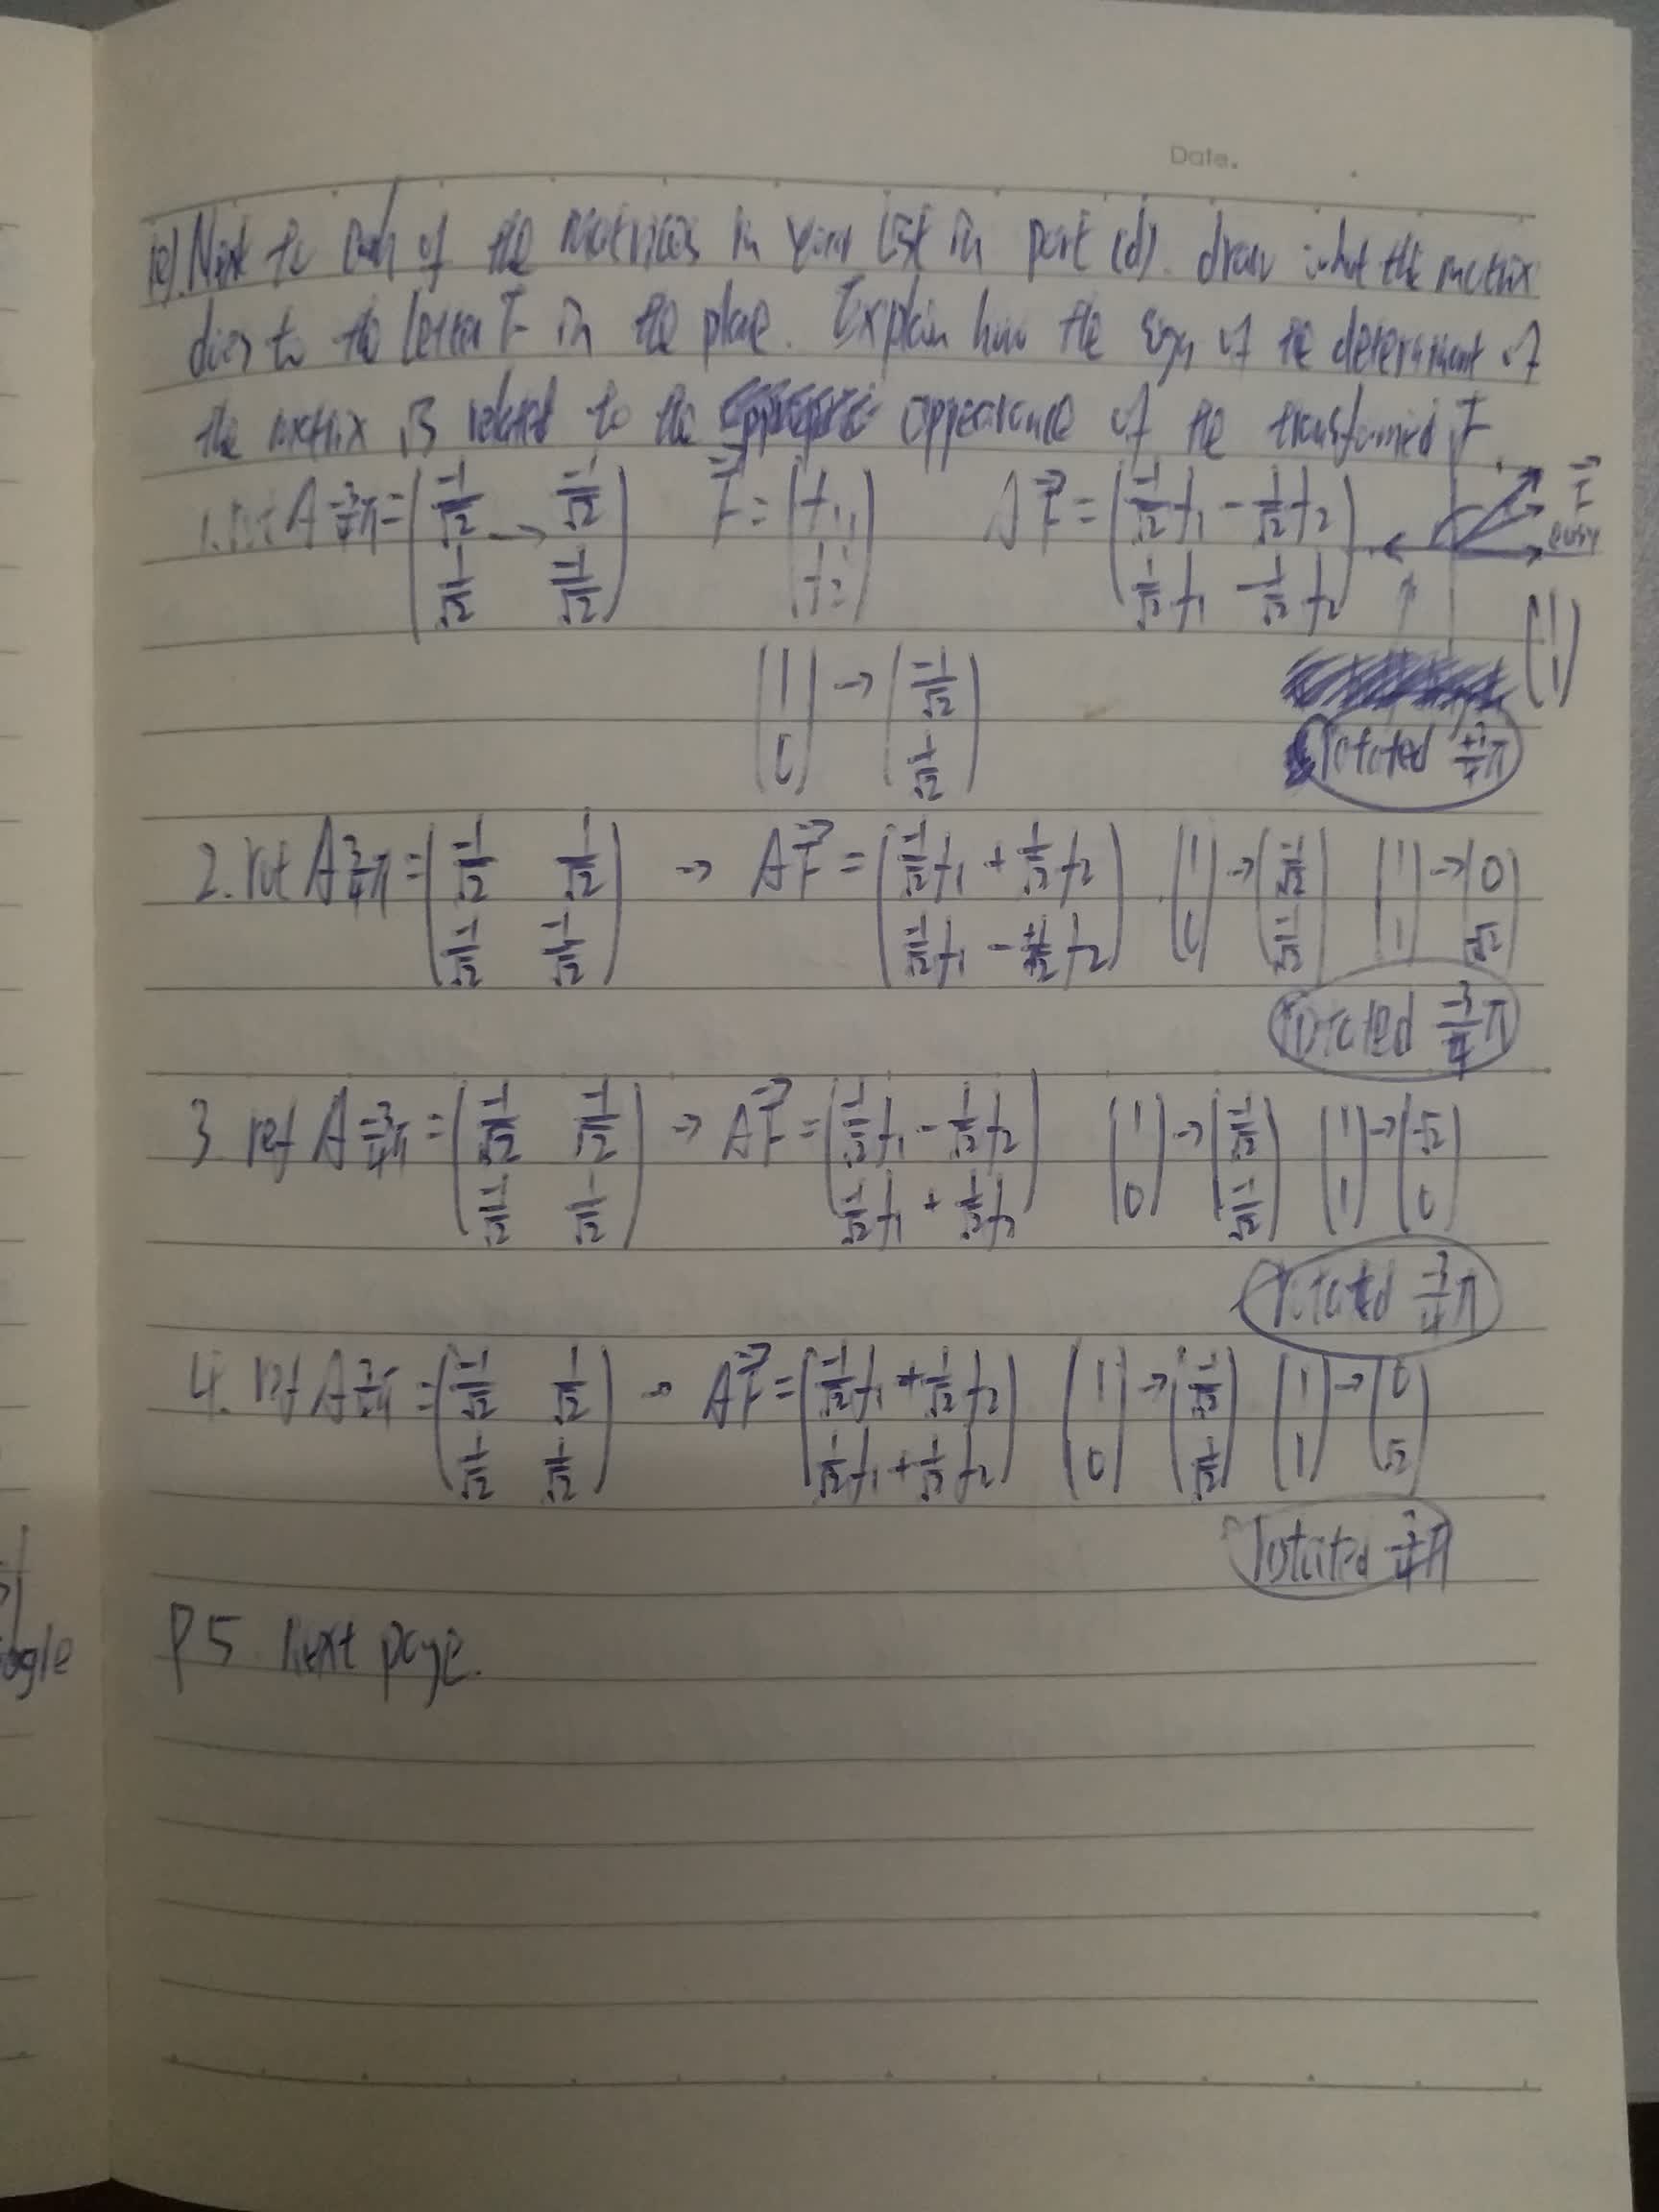 Date.
(e). Next to each of the matrices in your list in part (d). draw what the matrix
does to the letter F in the plane. Explain how the sign of the determinant of
the matrix is related to the appearance of the transformed F.
1. rot A -3/4 π = (-1/√2 -1/√2; 1/√2 -1/√2) F = (f1; f2) AF = (-1/√2 f1 - 1/√2 f2; 1/√2 f1 - 1/√2 f2) F
(1; 1)
(1; 0) → (-1/√2; 1/√2) rotated +3/4 π
2. rot A 3/4 π = (-1/√2 1/√2; -1/√2 -1/√2) → AF = (-1/√2 f1 + 1/√2 f2; -1/√2 f1 - 1/√2 f2) (1; 0) → (-1/√2; -1/√2) (1; 1) → (0; -√2)
rotated -3/4 π
3. ref A -3/4 π = (-1/√2 -1/√2; -1/√2 1/√2) → AF = (-1/√2 f1 - 1/√2 f2; -1/√2 f1 + 1/√2 f2) (1; 0) → (-1/√2; -1/√2) (1; 1) → (-√2; 0)
rotated -3/4 π
4. ref A 3/4 π = (-1/√2 1/√2; 1/√2 1/√2) → AF = (-1/√2 f1 + 1/√2 f2; 1/√2 f1 + 1/√2 f2) (1; 0) → (-1/√2; 1/√2) (1; 1) → (0; √2)
rotated 3/4 π
P5. next page.